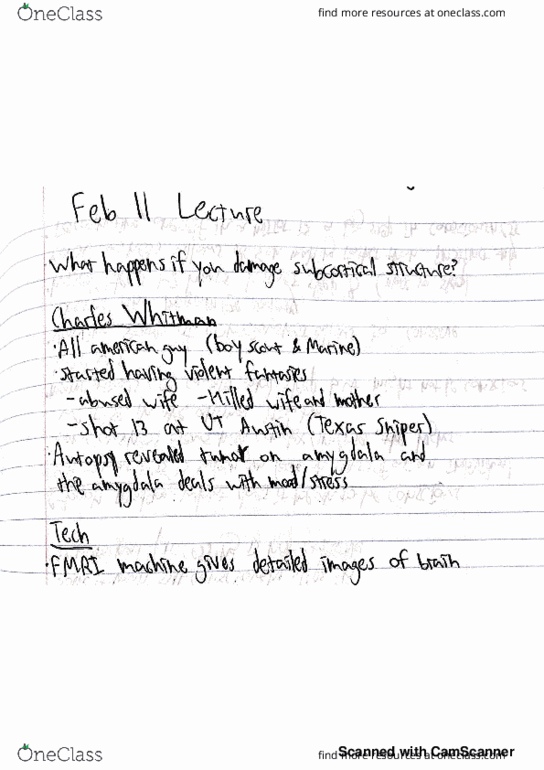 OneClass
find more resources at oneclass.com
Feb 11 Lecture
What happens if you damage subcortical structure?
Charles Whitman
·All american guy (boy scout & Marine)
·started having violent fantasies
-abused wife -Killed wife and mother
-shot 13 at UT Austin (Texas Sniper)
·Autopsy revealed tumor on amygdala and
the amygdala deals with mood/stress
Tech
·FMRI machine gives detailed images of brain
OneClass
find more resources at oneclass.com
Scanned with CamScanner